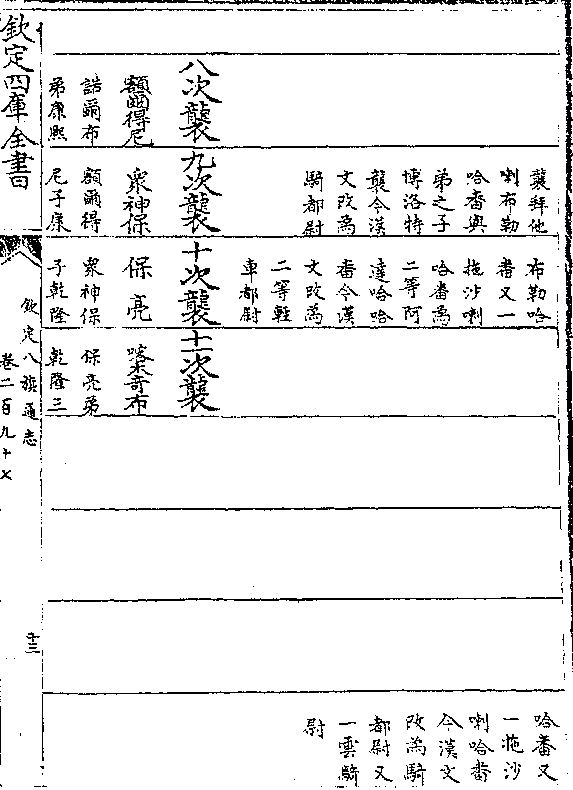 八次襲
額爾得尼
誥爾布
弟康熙
襲拜他
喇布勒
哈番與
弟之子
博洛特
襲今漢
文改為
騎都尉
九次襲
衆神保
額爾得
尼子康
布勒哈
番又一
拖沙喇
哈番為
二等阿
達哈哈
番今漢
文改為
二等輕
車都尉
十次襲
保亮
衆神保
子乾隆
十一次襲
奇布
保亮弟
乾隆三
哈番又
一拖沙
喇哈番
今漢文
改為騎
都尉又
一雲騎
尉
欽定四庫全書
欽定八旗通志
卷二百九十七
十三